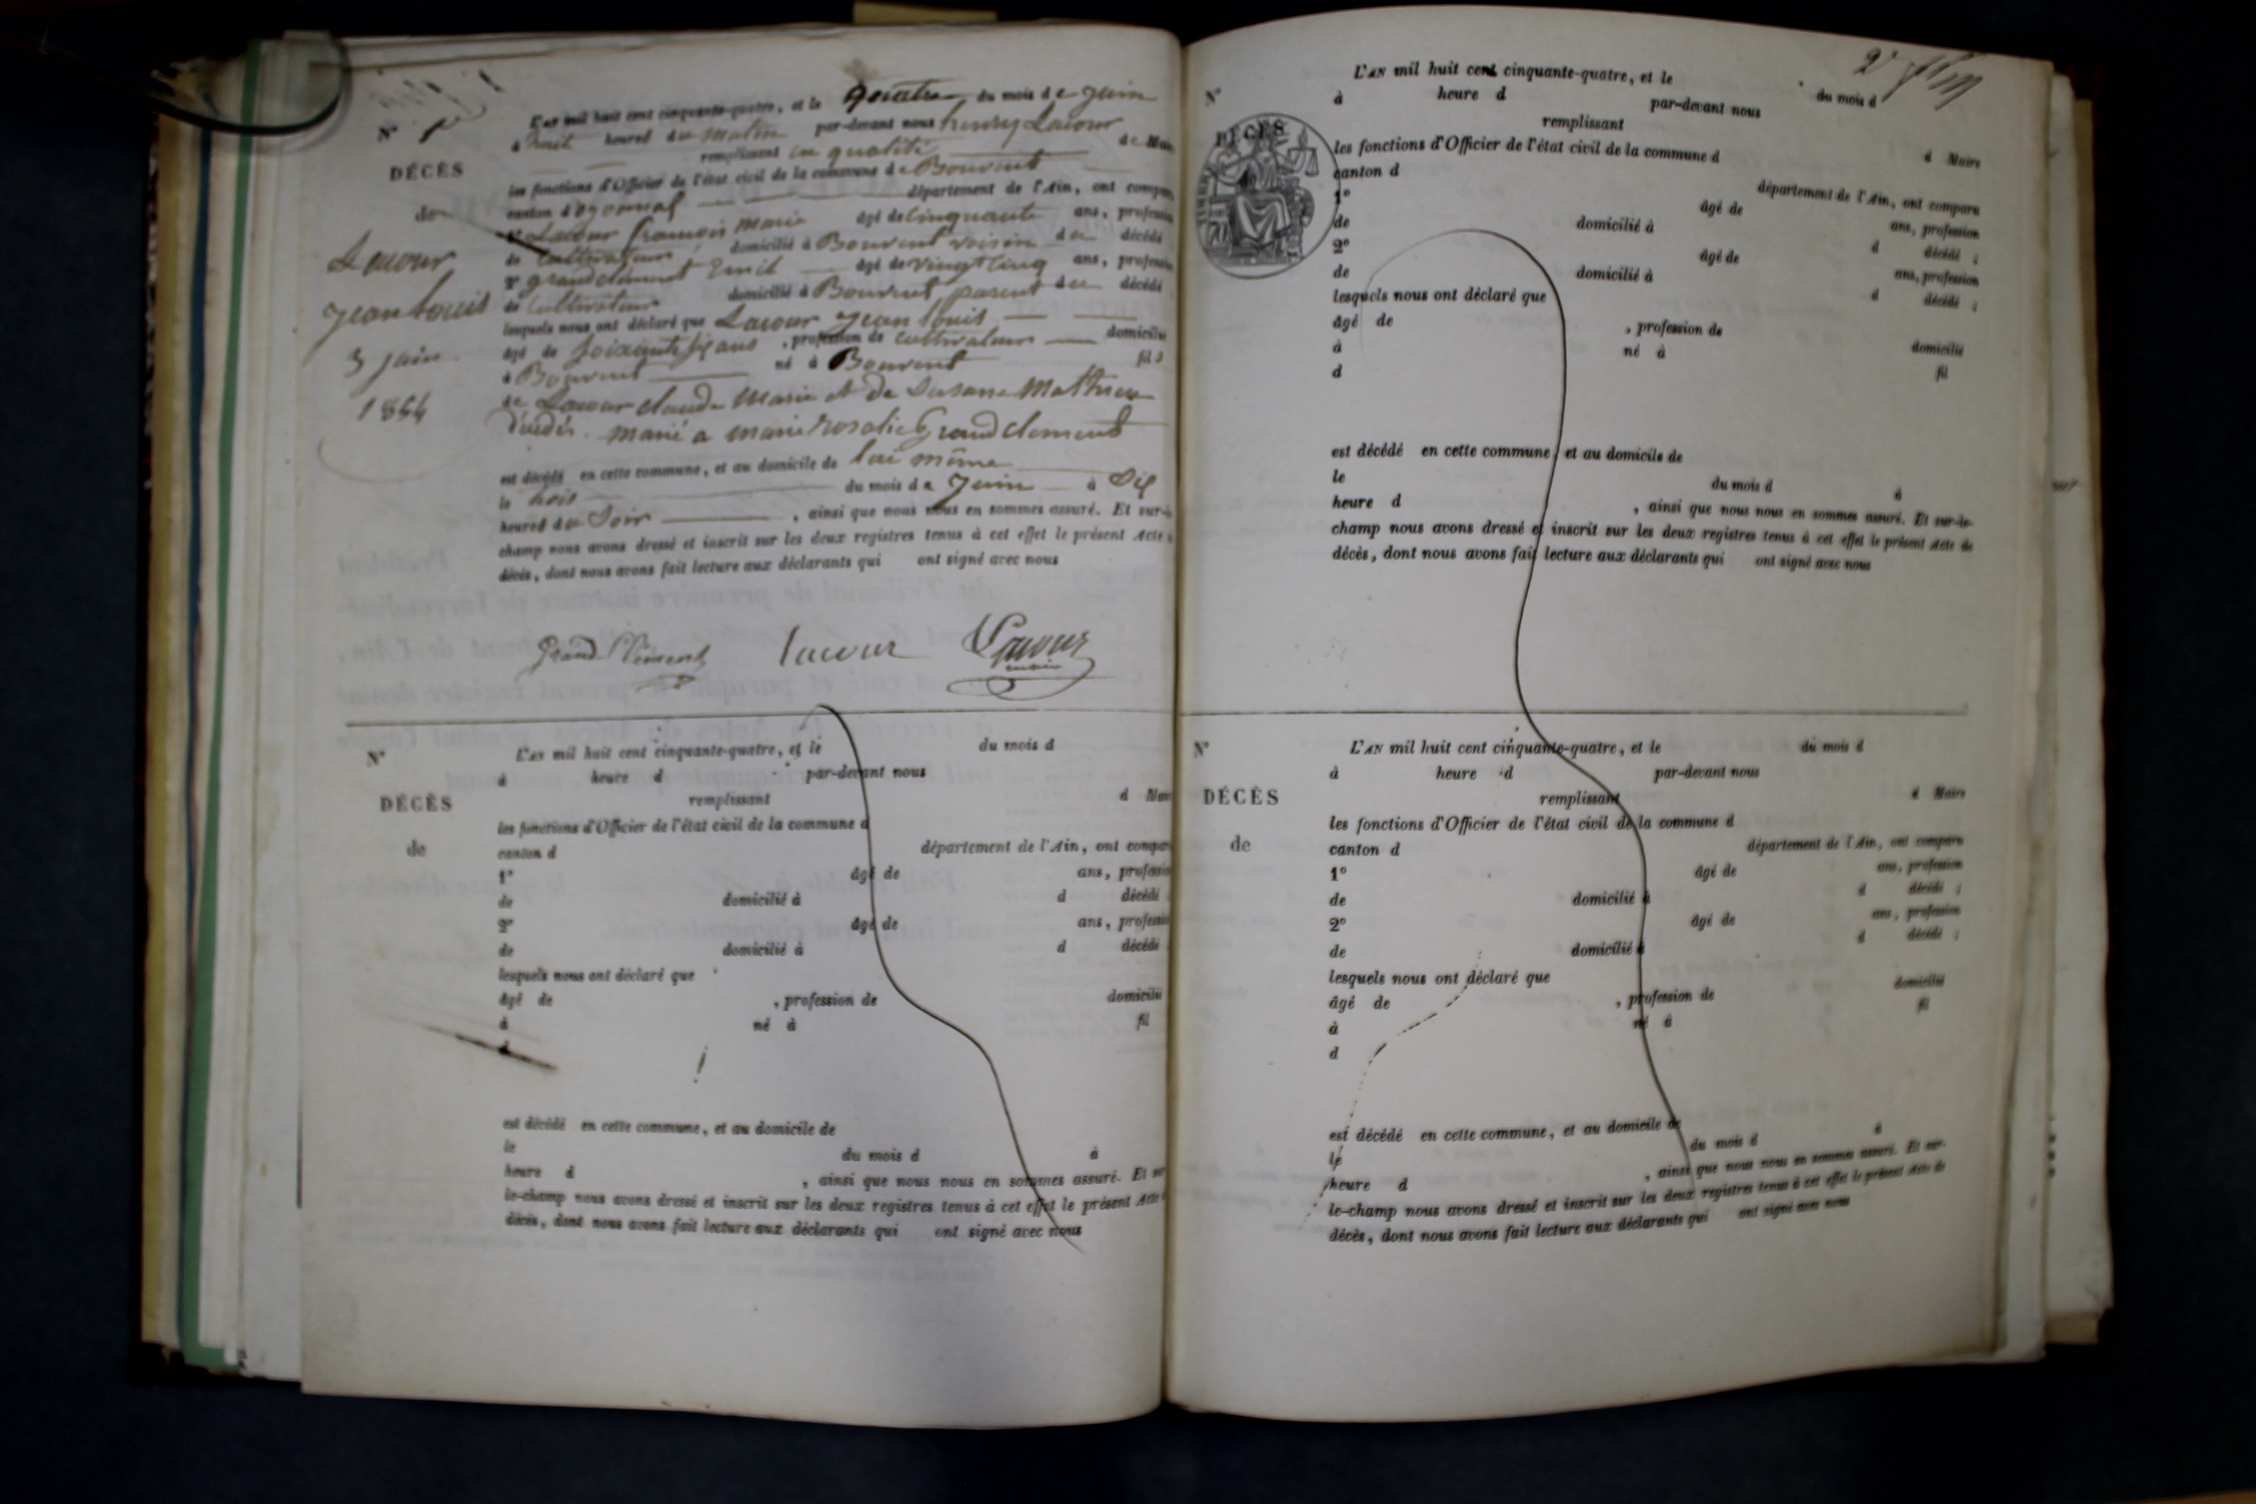 L'AN mil huit cent cinquante-quatre, et le quatre du mois de Juin
à huit heures du matin par-devant nous henry Lacour
remplissant en qualité de Maire
les fonctions d'Officier de l'état civil de la commune de Bouvent
canton d'oyonnax département de l'Ain, ont compar
1° Lacour françois marie âgé de Cinquante ans, profession
de Cultivateur domicilié à Bouvent voisin du décédé
2° grandclément Emil âgé de vingt cinq ans, profession
de Cultivateur domicilié à Bouvent parent du décédé
lesquels nous ont déclaré que Lacour jean louis
âgé de soixante six ans, profession de cultivateur domicilié
à Bouvent né à Bouvent fils
de Lacour claude Marie et de Susanne Mathieu
décédés. marié a marie rosalie Grandclement
est décédé en cette commune, et au domicile de lui même
le trois du mois de Juin à Dix
heures du Soir, ainsi que nous nous en sommes assuré. Et sur-le
champ nous avons dressé et inscrit sur les deux registres tenus à cet effet le présent Acte
décès, dont nous avons fait lecture aux déclarants qui ont signé avec nous
N° 1
DÉCÈS
de
Lacour
jean louis
3 juin
1854
Grand Clément lacour Lacour
maire
N°
DÉCÈS
de
L'AN mil huit cent cinquante-quatre, et le du mois d
à heure d par-devant nous
remplissant d Mai
les fonctions d'Officier de l'état civil de la commune d
canton d département de l'Ain, ont compar
1° âgé de ans, profession
de domicilié à d décédé
2° âgé de ans, profession
de domicilié à d décédé
lesquels nous ont déclaré que
âgé de , profession de domicilié
à né à fil
d
est décédé en cette commune, et au domicile de
le du mois d à
heure d , ainsi que nous nous en sommes assuré. Et sur
le-champ nous avons dressé et inscrit sur les deux registres tenus à cet effet le présent Acte
décès, dont nous avons fait lecture aux déclarants qui ont signé avec nous
N°
DÉCÈS
L'AN mil huit cent cinquante-quatre, et le du mois d
à heure d par-devant nous
remplissant d Maire
les fonctions d'Officier de l'état civil de la commune d
canton d département de l'Ain, ont comparu
1° âgé de ans, profession
de domicilié à d décédé ;
2° âgé de ans, profession
de domicilié à d décédé ;
lesquels nous ont déclaré que
âgé de , profession de domicilié
à né à fil
d
est décédé en cette commune, et au domicile de
le du mois d à
heure d , ainsi que nous nous en sommes assuré. Et sur-le-
champ nous avons dressé et inscrit sur les deux registres tenus à cet effet le présent Acte de
décès, dont nous avons fait lecture aux déclarants qui ont signé avec nous
N°
DÉCÈS
de
L'AN mil huit cent cinquante-quatre, et le du mois d
à heure d par-devant nous
remplissant d Maire
les fonctions d'Officier de l'état civil de la commune d
canton d département de l'Ain, ont comparu
1° âgé de ans, profession
de domicilié à d décédé ;
2° âgé de ans, profession
de domicilié à d décédé ;
lesquels nous ont déclaré que
âgé de , profession de domicilié
à né à fil
d
est décédé en cette commune, et au domicile de
le du mois d à
heure d , ainsi que nous nous en sommes assuré. Et sur-
le-champ nous avons dressé et inscrit sur les deux registres tenus à cet effet le présent Acte de
décès, dont nous avons fait lecture aux déclarants qui ont signé avec nous